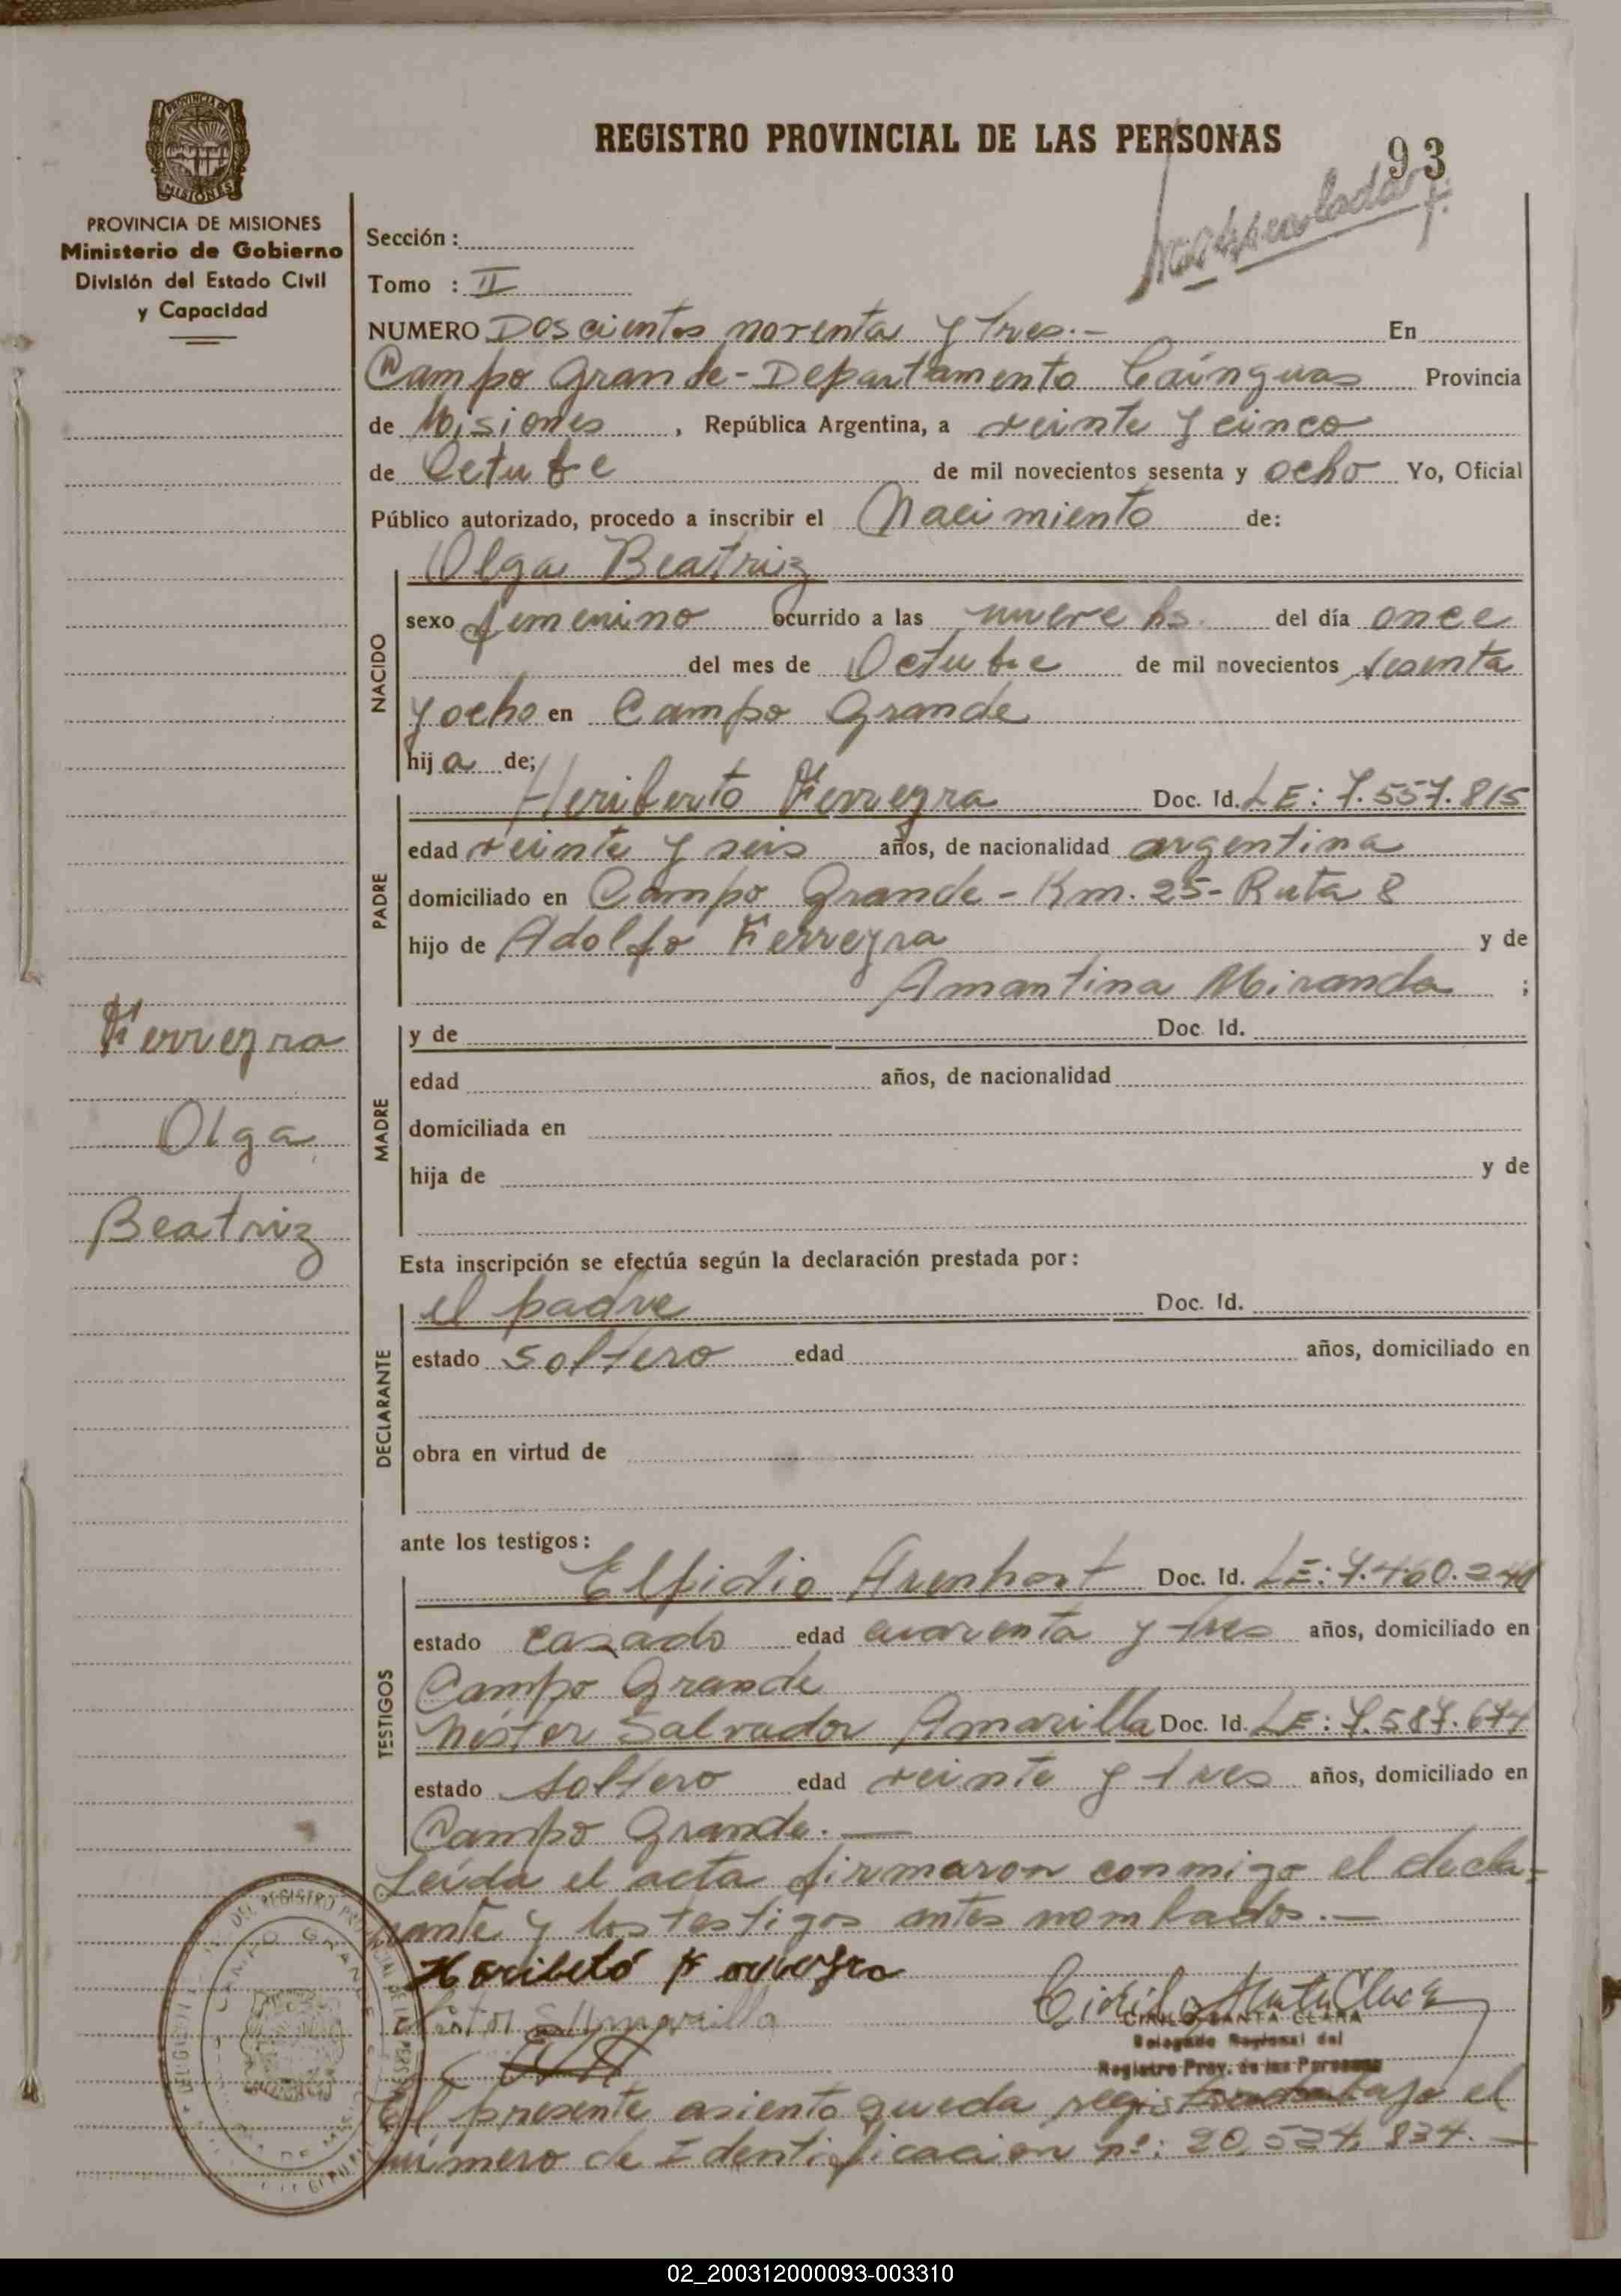 REGISTRO PROVINCIAL DE LAS PERSONAS
93
Matriculada
PROVINCIA DE MISIONES
Ministerio de Gobierno
División del Estado Civil
y Capacidad
Sección :
Tomo : II
NUMERO Doscientos noventa y tres.- En
Campo Grande - Departamento Cainguas Provincia
de Misiones, República Argentina, a veinte y cinco
de Octubre de mil novecientos sesenta y ocho Yo, Oficial
Público autorizado, procedo a inscribir el Nacimiento de:
NACIDO
Olga Beatriz
sexo femenino ocurrido a las nueve hs. del día once
del mes de Octubre de mil novecientos sesenta
y ocho en Campo Grande
hija de;
PADRE
Heriberto Ferreyra Doc. Id. LE: 7.557.815
edad veinte y seis años, de nacionalidad argentina
domiciliado en Campo Grande - Km. 25 - Ruta 8
hijo de Adolfo Ferreyra y de
Amantina Miranda ;
Ferreyra
Olga
Beatriz
MADRE
y de Doc. Id.
edad años, de nacionalidad
domiciliada en
hija de y de
Esta inscripción se efectúa según la declaración prestada por :
DECLARANTE
el padre Doc. Id.
estado soltero edad años, domiciliado en
obra en virtud de
ante los testigos :
TESTIGOS
Elfidio Arenhart Doc. Id. LE: 7.460.240
estado casado edad cuarenta y tres años, domiciliado en
Campo Grande
Néster Salvador Amarilla Doc. Id. LE: 7.587.674
estado soltero edad veinte y tres años, domiciliado en
Campo Grande.-
Leída el acta firmaron conmigo el decla-
rante y los testigos antes nombados.-
Heribetó Ferreyra
Néstor S Amarilla
Cirilo Santa Clara
CIRILO SANTA CLARA
Delegado Regional del
Registro Prov. de las Personas
El presente asiento queda registrado bajo el
número de Identificacion nº: 20,524,834.-
02_200312000093-003310